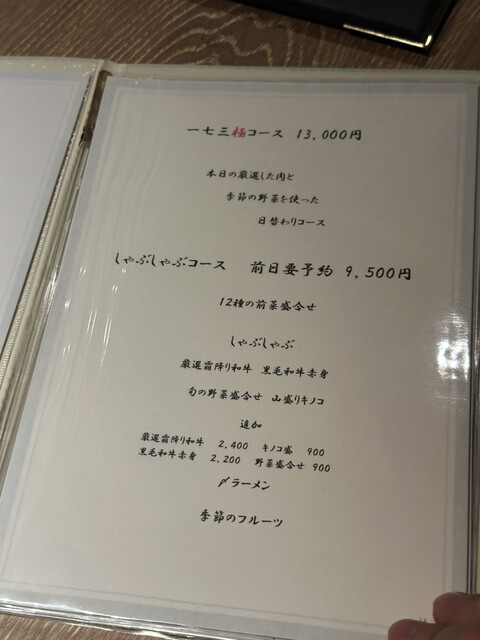 一七三極コース 13,000円
本日の厳選した肉と
季節の野菜を使った
日替わりコース
しゃぶしゃぶコース 前日要予約 9,500円
12種の前菜盛合せ
しゃぶしゃぶ
厳選霜降り和牛 黒毛和牛赤身
旬の野菜盛合せ 山盛りキノコ
追加
厳選霜降り和牛 2,400 キノコ盛 900
黒毛和牛赤身 2,200 野菜盛合せ 900
〆ラーメン
季節のフルーツ